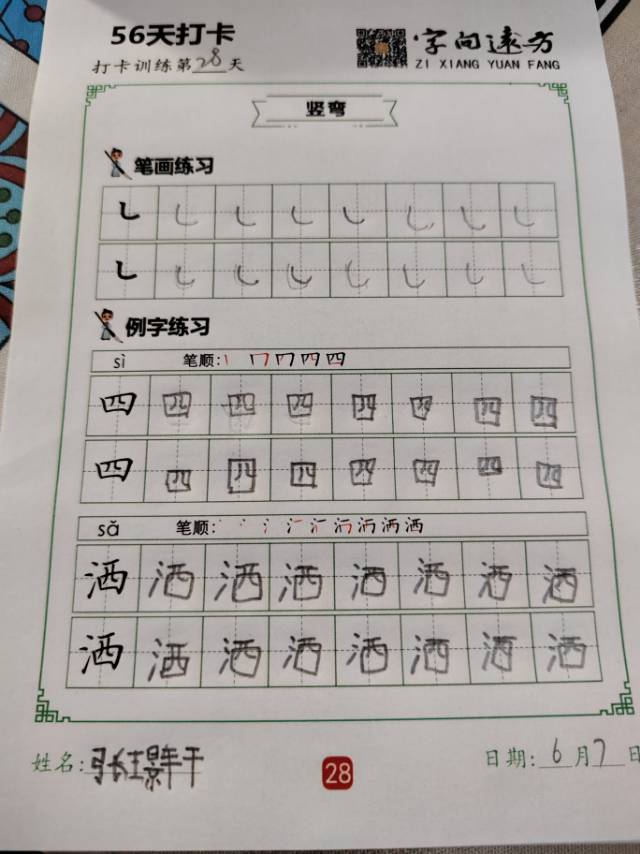 56天打卡
打卡训练第28天
字向远方
ZI XIANG YUAN FANG
竖弯
笔画练习
㇄ ㇄ ㇄ ㇄ ㇄ ㇄ ㇄ ㇄
㇄ ㇄ ㇄ ㇄ ㇄ ㇄ ㇄ ㇄
例字练习
sì 笔顺:
四 四 四 四 四 四 四 四
四 四 四 四 四 四 四 四
sǎ 笔顺:
洒 洒 洒 洒 洒 洒 洒 洒
洒 洒 洒 洒 洒 洒 洒 洒
姓名:张
28
日期:6月7日